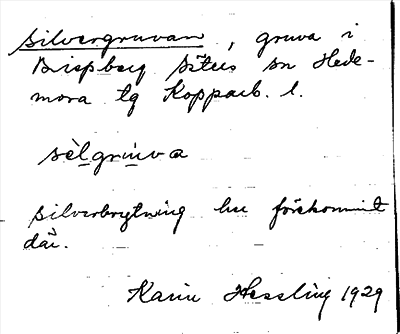 Silvergruvan, gruva i
Bispberg Säters sn Hede-
mora tg Kopparb. l.
sèlgruva
Silverbrytning har förekommit
där.
Karin Hessling 1929